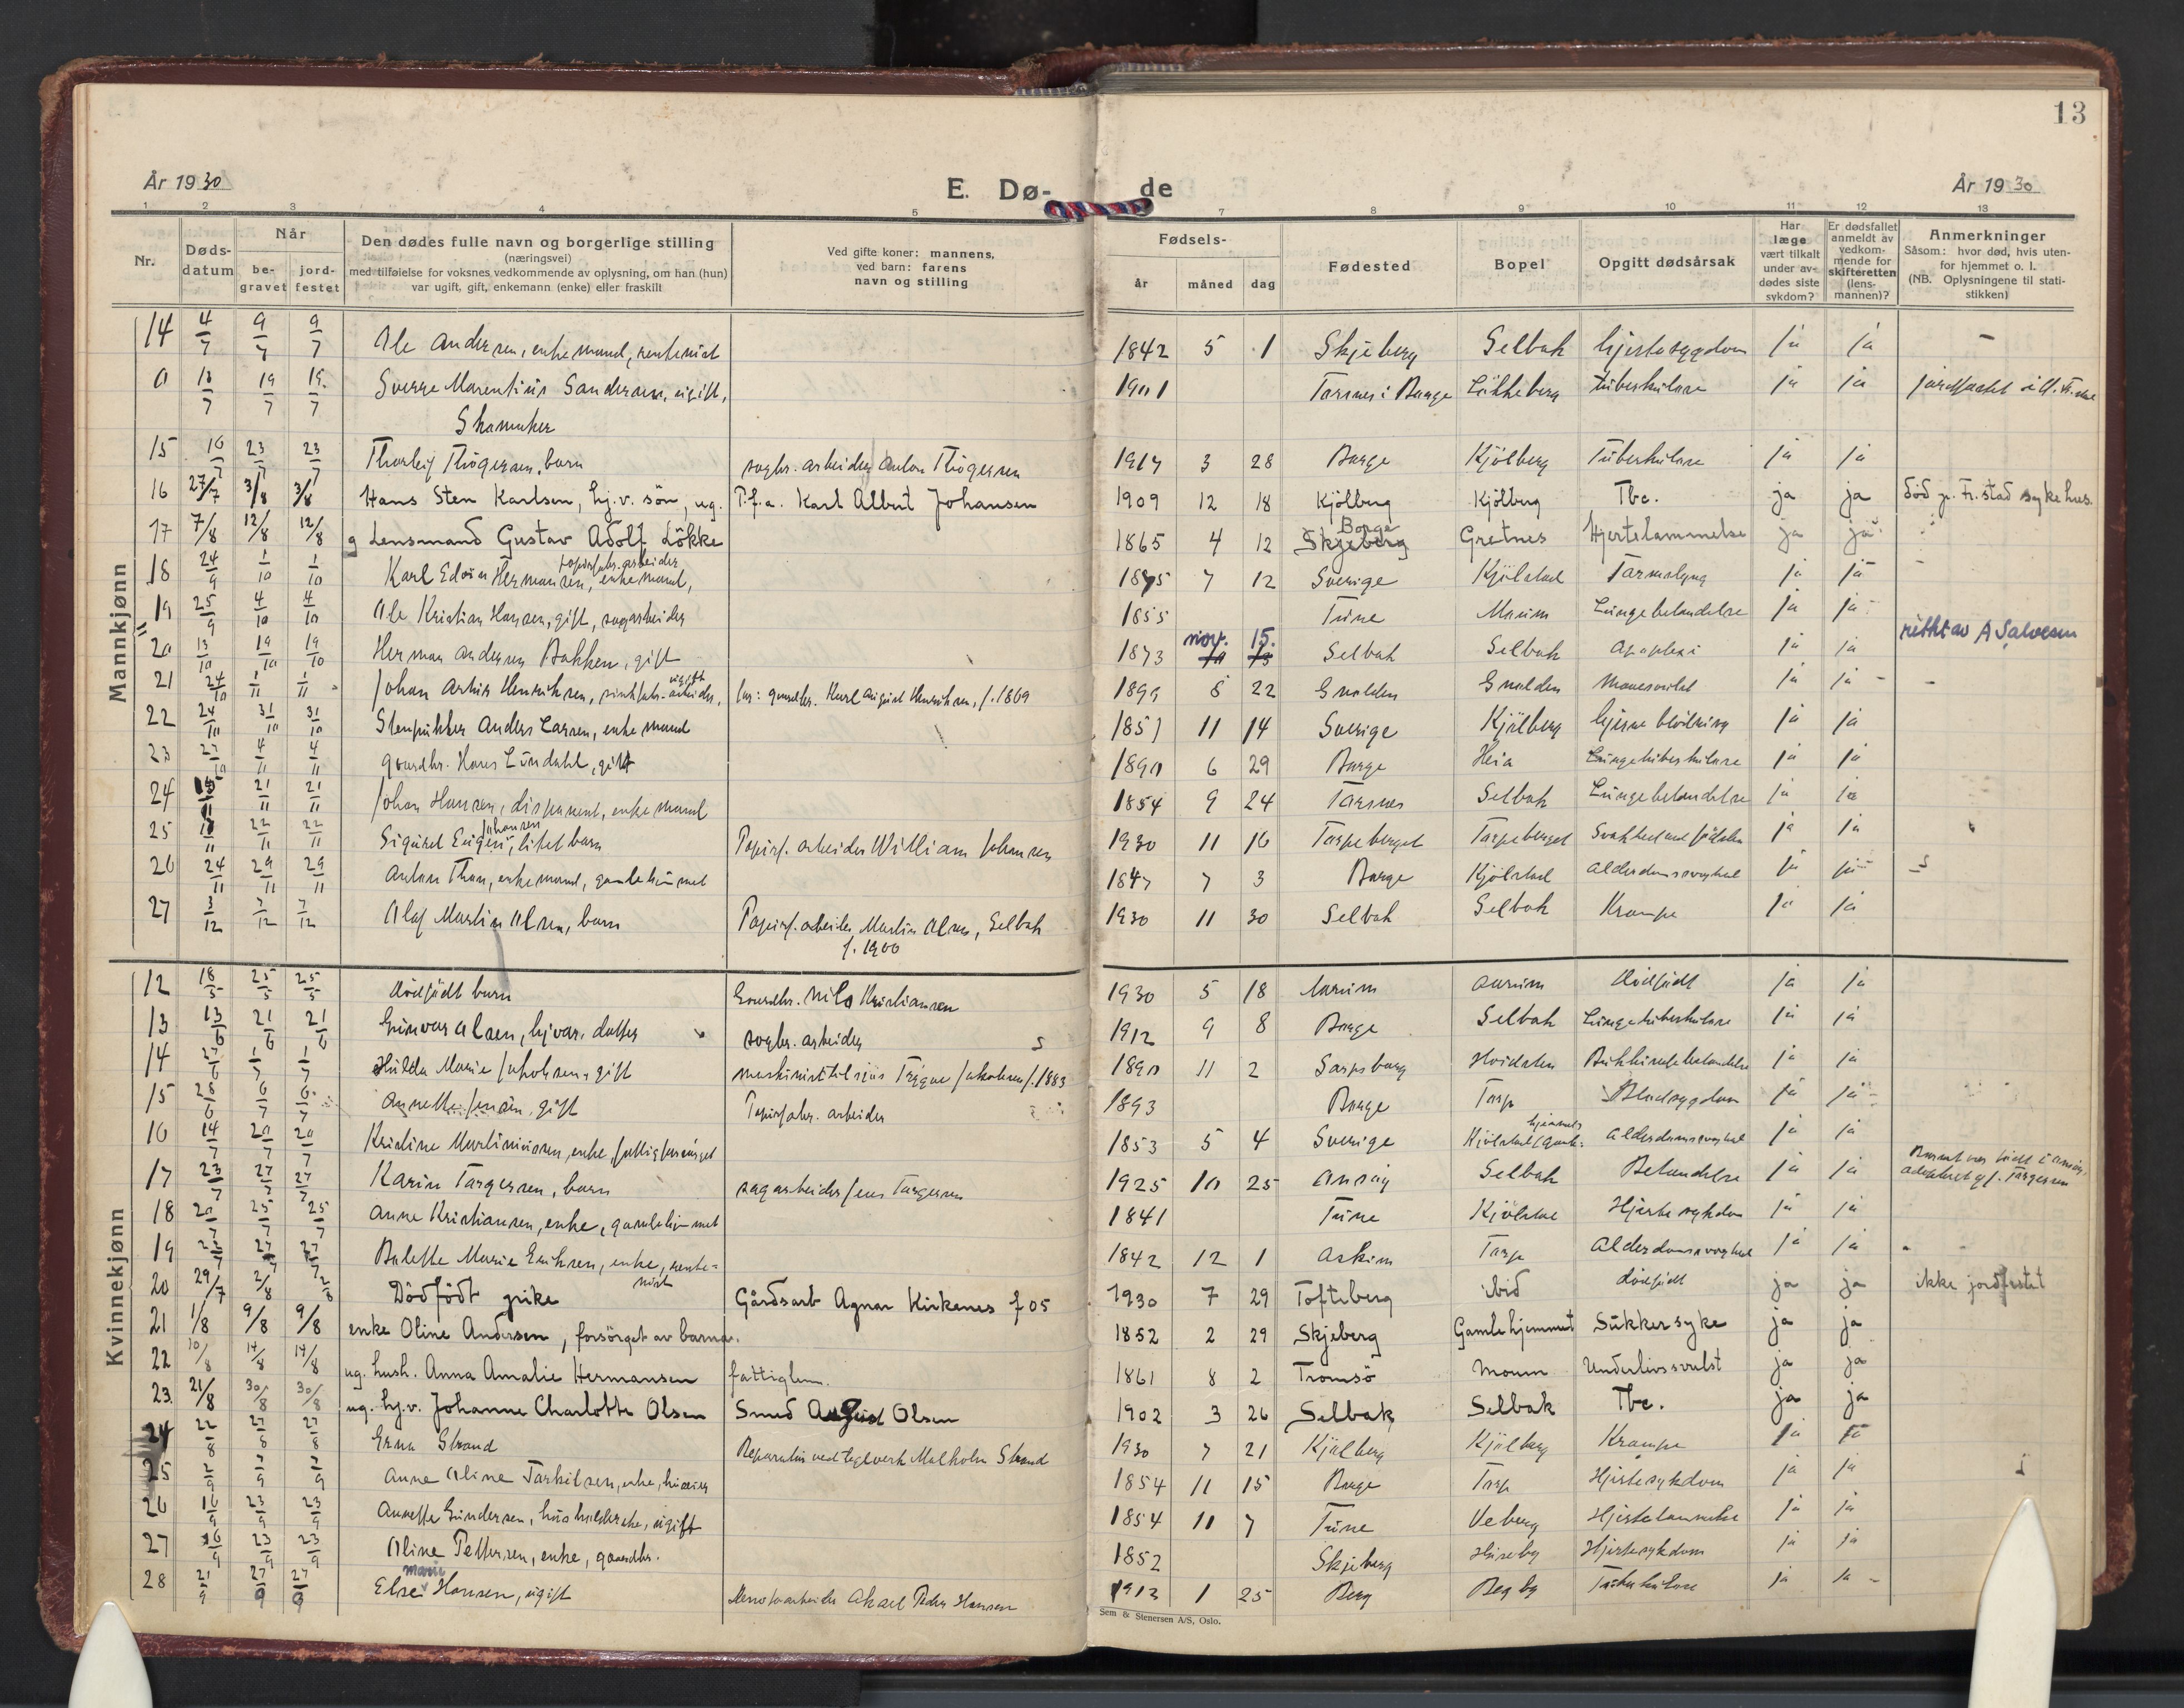 13
År 1930
E. Dø-
de
År 1930
1 2 3 4 5 7 8 9 10 11 12 13
Nr.
Døds-
datum
Når
be-
gravet
jord-
festet
Den dødes fulle navn og borgerlige stilling
(næringsvei)
med tilføielse for voksnes vedkommende av oplysning, om han (hun)
var ugift, gift, enkemann (enke) eller fraskilt
Ved gifte koner: mannens,
ved barn: farens
navn og stilling
Fødsels-
år
måned
dag
Fødested
Bopel
Opgitt dødsårsak
Har
læge
vært tilkalt
under av-
dødes siste
sykdom?
Er dødsfallet
anmeldt av
vedkom-
mende for
skifteretten
(lens-
mannen)?
Anmerkninger
Såsom: hvor død, hvis uten-
for hjemmet o. l.
(NB. Oplysningene til stati-
stikken)
Mannkjønn
14 4/7 9/7 9/7 Ole Andersen, enkemand, rentenist 1842 5 1 Skjeberg Selbak hjertesygdom ja ja –
0 13/7 19/7 19/7 Sverre Marentius Sandersen, ugift, 1901 Torsnes i Borge Lökkeberg tuberkulose ja ja
Skomaker
15 16/7 23/7 23/7 Thorleif Thögersen, barn sagbr. arbeider Anton Thögersen 1914 3 28 Borge Kjölberg Tuberkulose ja ja
16 27/7 3/8 3/8 Hans Sten Karlsen, hj.v. sön, ug. P.f.a. Karl Albert Johansen 1909 12 18 Kjölberg Kjölberg Tbc. ja ja död p. Fr.stad sykehus.
17 7/8 12/8 12/8 g Lensmand Gustav Adolf Lökke 1865 4 12 Skjeberg Borge Gretnes Hjertelammelse ja ja
18 24/9 1/10 1/10 Karl Edvin Hermansen, enkemand, papirfabr. arbeider 1875 7 12 Sverige Kjölstad ja ja
19 25/9 4/10 4/10 Ole Kristian Hansen, gift, sagarbeider 1855 Tune Moum Lungebetændelse ja ja
20 13/10 19/10 19/10 Herman Andersen Bakken, gift 1873 nov. 15. Selbak Selbak Apoplexi ja ja rettet av A Salvesen
21 24/10 1/11 1/11 Johan Artur Henriksen, arbeider, ugift far: gaardbr. Karl August Henriksen, f. 1869 1899 8 22 Gnalden Gnalden Mavesvulst ja ja –
22 24/10 31/10 31/10 Stenpukker Anders Larsen, enkemand 1851 11 14 Sverige Kjölberg hjerneblödning ja ja
23 27/10 4/11 4/11 gaardbr. Hans Lundahl, gift 1890 6 29 Borge Heia Lungetuberkulose ja ja
24 15/11 21/11 21/11 Johan Hansen, disponent, enkemand 1854 9 24 Torsnes Selbak Lungebetændelse ja ja
25 22/11 22/11 Sigurd Eugen Johansen, litet barn Papirf. arbeider William Johansen 1930 11 16 Torpeberget Torpeberget ja ja
26 24/11 29/11 29/11 Anton Thon, enkemand, gamlehjemmet 1847 7 3 Borge Kjölstad Alderdomssvaghet ja ja
27 3/12 7/12 7/12 Olaf Martin Olsen, barn Papirf. arbeider Martin Olsen, Selbak 1930 11 30 Selbak Selbak Krampe ja ja
f. 1900
Kvinnekjønn
12 18/5 25/5 25/5 Dödfödt barn Gaardbr. Nils Kristiansen 1930 5 18 Moum Dödfödt ja ja
13 13/6 21/6 21/6 Gunvor Olsen, hjvær. datter sagbr. arbeider 1912 9 8 Borge Selbak Lungetuberkulose ja ja
14 27/6 1/7 1/7 Hilda Marie Jakobsen, gift maskinist tilsjös Trygve Jakobsen f. 1883 1890 11 2 Sarpsborg Hvidsten Bukhindebetændelse ja ja
15 28/6 6/7 6/7 Annette Jensen, gift Papirfabr. arbeider 1893 Borge Torp Blodsygdom ja ja
16 14/7 20/7 20/7 Kristine Martiniussen, enke, fattigforsörget 1853 5 4 Sverige Kjölstad (gamle- hjemmet Alderdomssvaghet ja ja
17 23/7 27/7 27/7 Karin Torgersen, barn sagarbeider Jens Torgersen 1925 10 25 Onsöy Selbak Betændelse ja ja Barnet var födt i Onsöy, adoptert af J. Torgersen
18 20/7 25/7 25/7 Anne Kristiansen, enke, gamlehjemmet 1841 Tune Kjölstad Hjertesykdom ja ja
19 27/7 27/7 Bolette Marie Eriksen, enke, rente- 1842 12 1 Askim Torp Alderdomssvaghet ja ja
nist
20 29/7 2/8 2/8 Dödfödt pike Gårdsarb Agnar Kirkenes f 05 1930 7 29 Tofteberg ibid Dödfödt ja ja ikke jordfestet
21 1/8 9/8 9/8 enke Oline Andersen, forsörget av barna. 1852 2 29 Skjeberg Gamlehjemmet Sukkersyke ja ja
22 10/8 14/8 14/8 ug. hush. Anna Amalie Hermansen fattiglem. 1861 8 2 Tromsö Moum Underlivssvulst ja ja
23. 21/8 30/8 30/8 ug. hj.v. Johanne Charlotte Olsen Smed August Olsen 1902 3 26 Selbak Selbak Tbc. ja ja
24 22/8 27/8 27/8 Erna Strand Reparatör ved teglverk Malholm Strand 1930 7 21 Kjölberg Kjölberg Krampe ja ja
25 2/9 7/9 7/9 Anne Oline Torkilsen, enke, huseier 1854 11 15 Borge Torp Hjertesykdom ja ja
26 16/9 23/9 23/9 Annette Gundersen, husholderske, ugift 1854 11 7 Tune Veberg Hjertelammelse ja ja
27 16/9 23/9 23/9 Oline Pettersen, enke, gaardbr. 1852 Skjeberg Huseby Hjertesykdom ja ja
28 21/9 27/9 27/9 Else Marie Hansen, ugift Aksel Peder Hansen 1913 1 25 Berg Begby Tuberkulose ja ja
Sem & Stenersen A/S, Oslo.